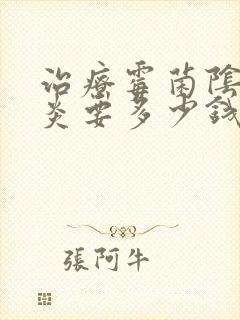 治療霉菌陰
炎要多少錢
張阿牛